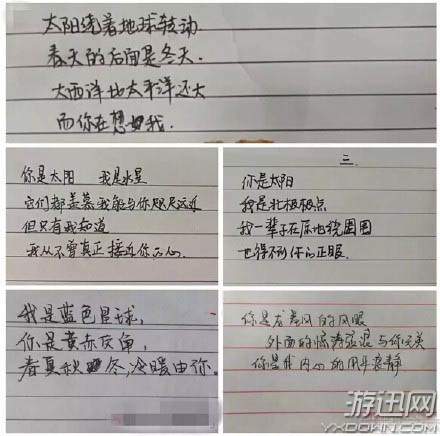 太阳绕着地球转动.
春天的后面是冬天.
大西洋比太平洋还大
而你在想我.
你是太阳 我是水星
它们都羡慕我能与你咫尺远近
但只有我知道
我从不曾真正接近你的心.
三.
你是太阳
我是北极极点
我一辈子在原地绕圈圈
也得不到你的正眼.
我是蓝色星球,
你是黄赤交角,
春夏秋冬,冷暖由你。
你是龙卷风的风眼
外面的惊涛骇浪与你无关
你是我内心的
游迅网
YXDOWN.COM